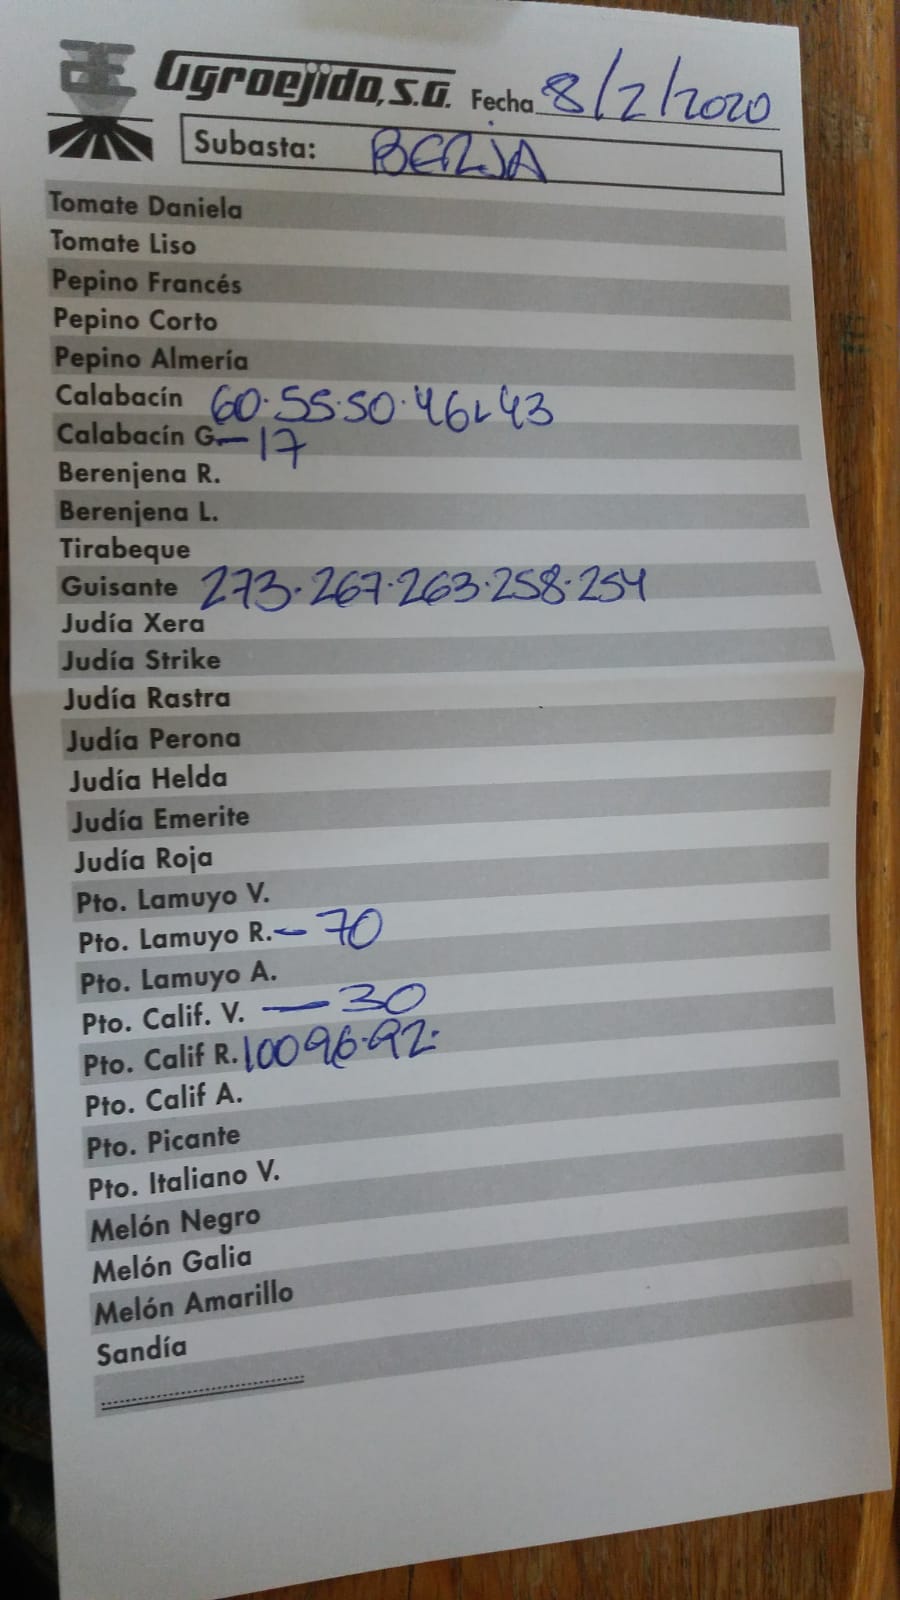 Agroejido, S.A. Fecha 8/2/2020
Subasta: BERJA
Tomate Daniela
Tomate Liso
Pepino Francés
Pepino Corto
Pepino Almería
Calabacín 60·55·50·46·43
Calabacín G.—17
Berenjena R.
Berenjena L.
Tirabeque
Guisante 273·267·263·258·254
Judía Xera
Judía Strike
Judía Rastra
Judía Perona
Judía Helda
Judía Emerite
Judía Roja
Pto. Lamuyo V.
Pto. Lamuyo R.— 70
Pto. Lamuyo A.
Pto. Calif. V. — 30
Pto. Calif R. 100 96·92·
Pto. Calif A.
Pto. Picante
Pto. Italiano V.
Melón Negro
Melón Galia
Melón Amarillo
Sandía